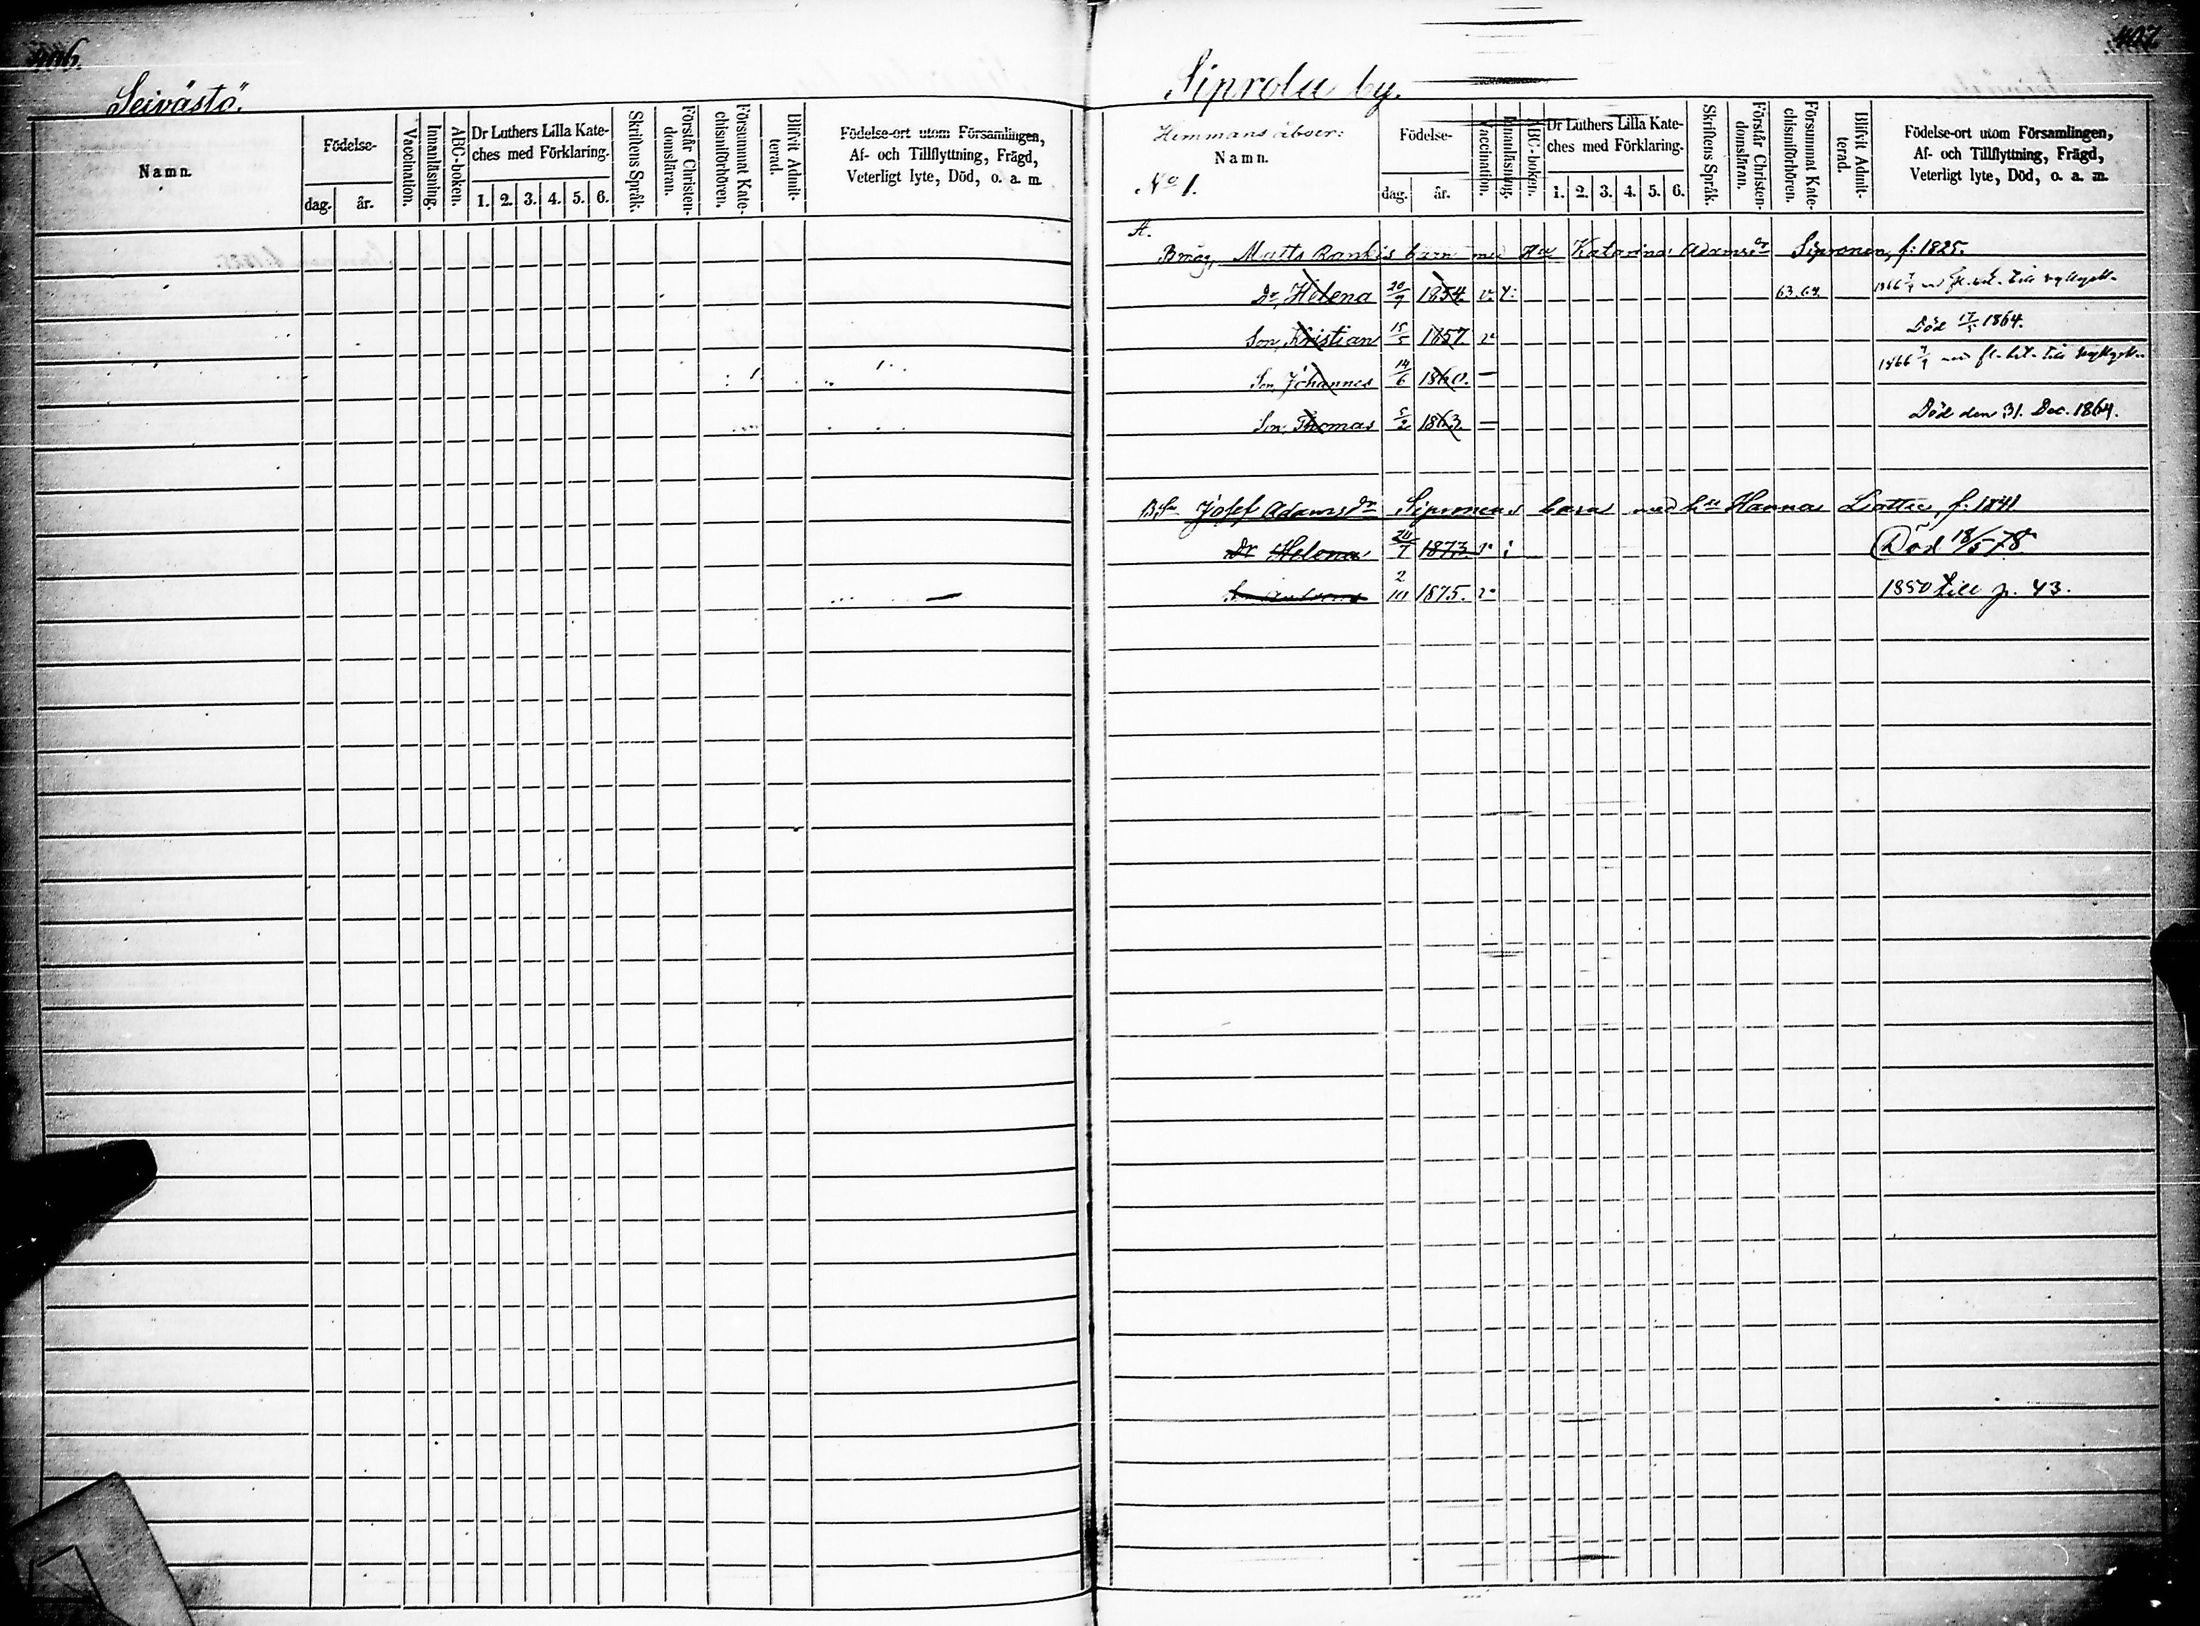 406.
Seivästö.
Namn.
Födelse-
dag.
år.
Vaccination.
Innanläsning.
ABC-boken.
Dr Luthers Lilla Kate-
ches med Förklaring.
1. 2. 3. 4. 5. 6.
Skriftens Språk.
Förstår Christen-
domsläran.
Försummat Kate-
chismiförhören.
Blifvit Admit-
terad.
Födelse-ort utom Församlingen,
Af- och Tillflyttning, Frägd,
Veterligt lyte, Död, o. a. m.
407
Siprola by.
Hemmans åboer:
Namn.
No 1.
Födelse-
dag.
år.
Vaccination.
Innanläsning.
ABC-boken.
Dr Luthers Lilla Kate-
ches med Förklaring.
1. 2. 3. 4. 5. 6.
Skriftens Språk.
Förstår Christen-
domsläran.
Försummat Kate-
chismiförhören.
Blifvit Admit-
terad.
Födelse-ort utom Församlingen,
Af- och Tillflyttning, Frägd,
Veterligt lyte, Död, o. a. m.
A.
Matts Rankis barn med Katarina Adamsdr Sipronen, f: 1825.
Dr, Helena 20/9 1854. v. 63.64.
Son, Kristian 15/5 1857 v Död 17/5 1864.
Son, Johannes 14/6 1860. —
Son, Thomas 5/2 1863. — Död den 31. Dec. 1864.
Josef Adams Sipronens barn med Hanna Lattu, f: 1841
Dr Helena 24/7 1873. v i Död 18/5 78
2/10 1875. v 1880 till p. 43.